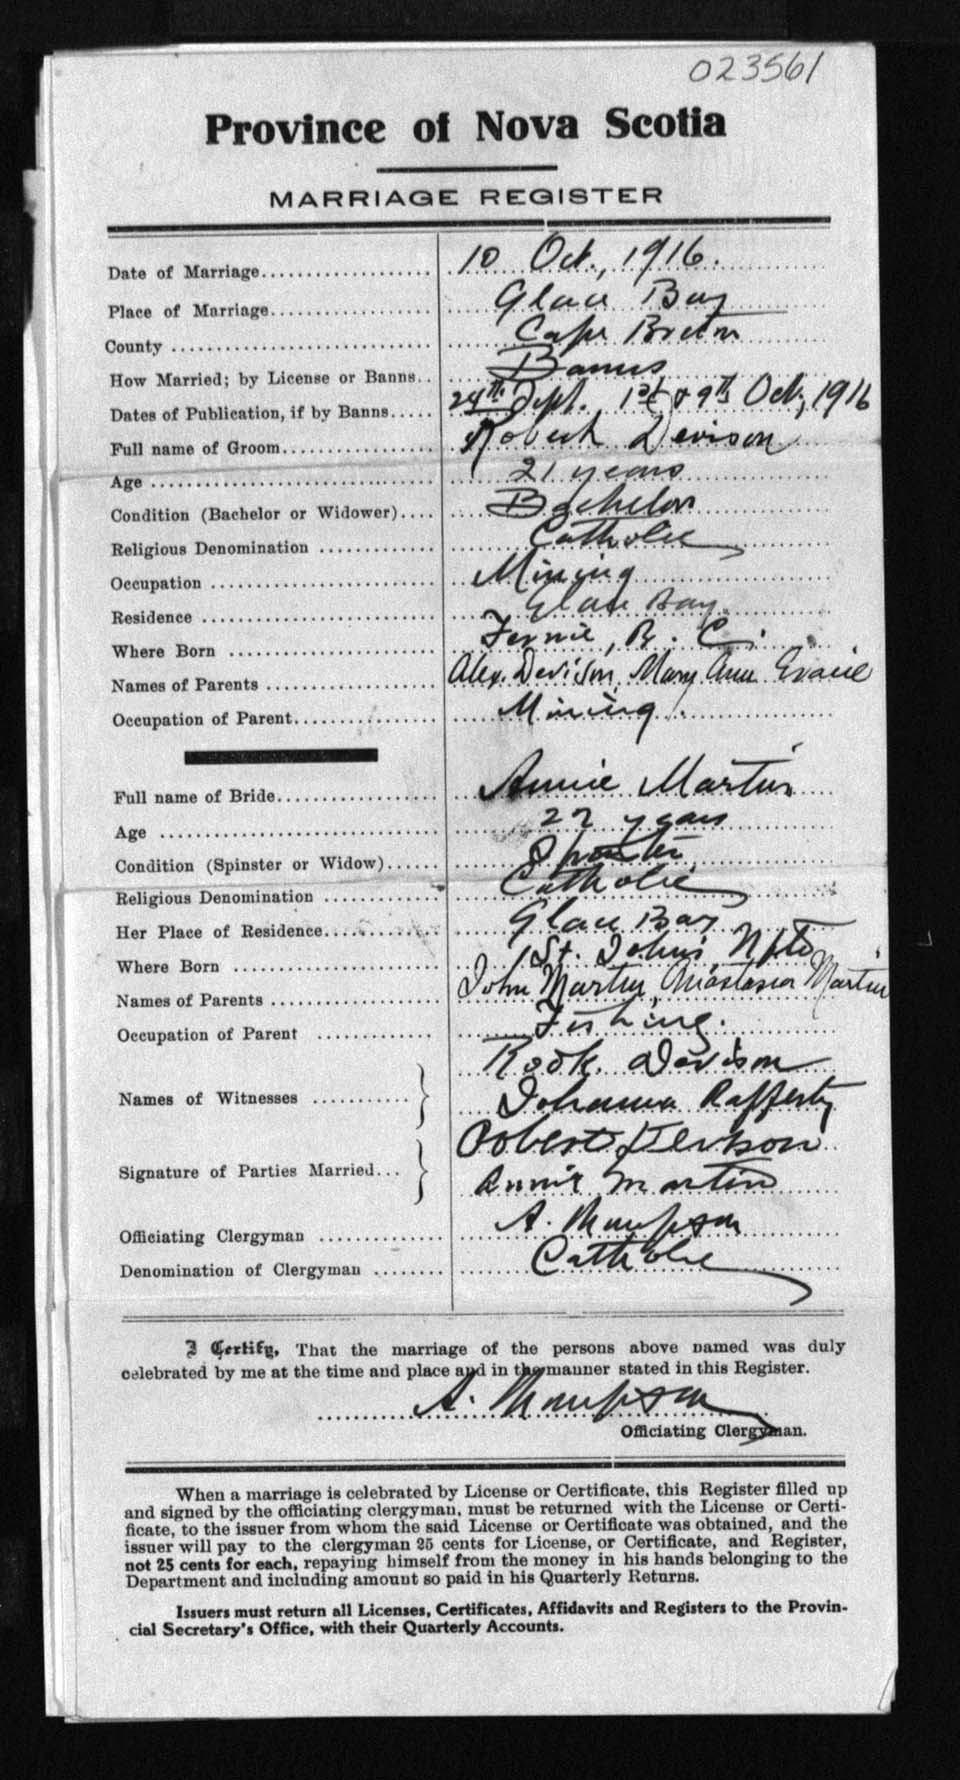 023561
Province of Nova Scotia
MARRIAGE REGISTER
Date of Marriage 10 Oct., 1916.
Place of Marriage Glace Bay
County Cape Breton
How Married; by License or Banns Banns
Dates of Publication, if by Banns 24th Sept. 1st & 9th Oct, 1916
Full name of Groom Robert Devison
Age 21 years
Condition (Bachelor or Widower) Bachelor
Religious Denomination Catholic
Occupation Mining
Residence Glace Bay
Where Born Fernie, B. C.
Names of Parents Alex. Devison, Mary Ann
Occupation of Parent Mining
Full name of Bride Annie Martin
Age 22 years
Condition (Spinster or Widow) Spinster
Religious Denomination Catholic
Her Place of Residence Glace Bay
Where Born St. John's Nfld
Names of Parents John Martin, Anastasia Martin
Occupation of Parent Fishing.
Names of Witnesses Devison
Johanna Rafferty
Signature of Parties Married Robert Devison
Annie Martin
Officiating Clergyman A. Thompson
Denomination of Clergyman Catholic
I Certify, That the marriage of the persons above named was duly
celebrated by me at the time and place and in the manner stated in this Register.
A. Thompson
Officiating Clergyman.
When a marriage is celebrated by License or Certificate, this Register filled up
and signed by the officiating clergyman, must be returned with the License or Certi-
ficate, to the issuer from whom the said License or Certificate was obtained, and the
issuer will pay to the clergyman 25 cents for License, or Certificate, and Register,
not 25 cents for each, repaying himself from the money in his hands belonging to the
Department and including amount so paid in his Quarterly Returns.
Issuers must return all Licenses, Certificates, Affidavits and Registers to the Provin-
cial Secretary's Office, with their Quarterly Accounts.